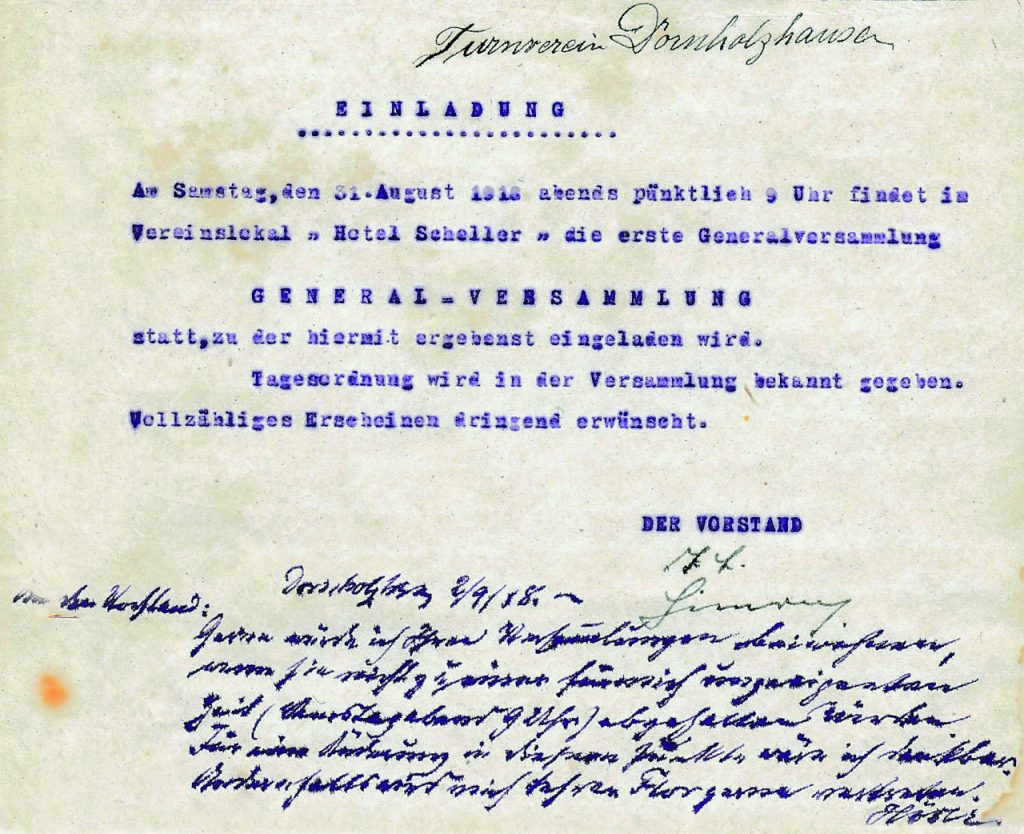 Turnverein Dornholzhausen
EINLADUNG
Am Samstag, den 31. August 1918 abends pünktlich 9 Uhr findet im
Vereinslokal „ Hotel Scheller „ die erste Generalversammlung
GENERAL-VERSAMMLUNG
statt, zu der hiermit ergebenst eingeladen wird.
Tagesordnung wird in der Versammlung bekannt gegeben.
Vollzähliges Erscheinen dringend erwünscht.
DER VORSTAND
2/9/18.
den Vorstand:
Gerne würde ich Ihren Versammlungen beiwohnen,
wenn sie nicht zu einer für mich ungeeigneten
Zeit (Samstagabend 9 Uhr) abgehalten würden
Für eine Änderung in diesem Punkte wäre ich dankbar.
Andernfalls wird mich Lehrer gerne vertreten.